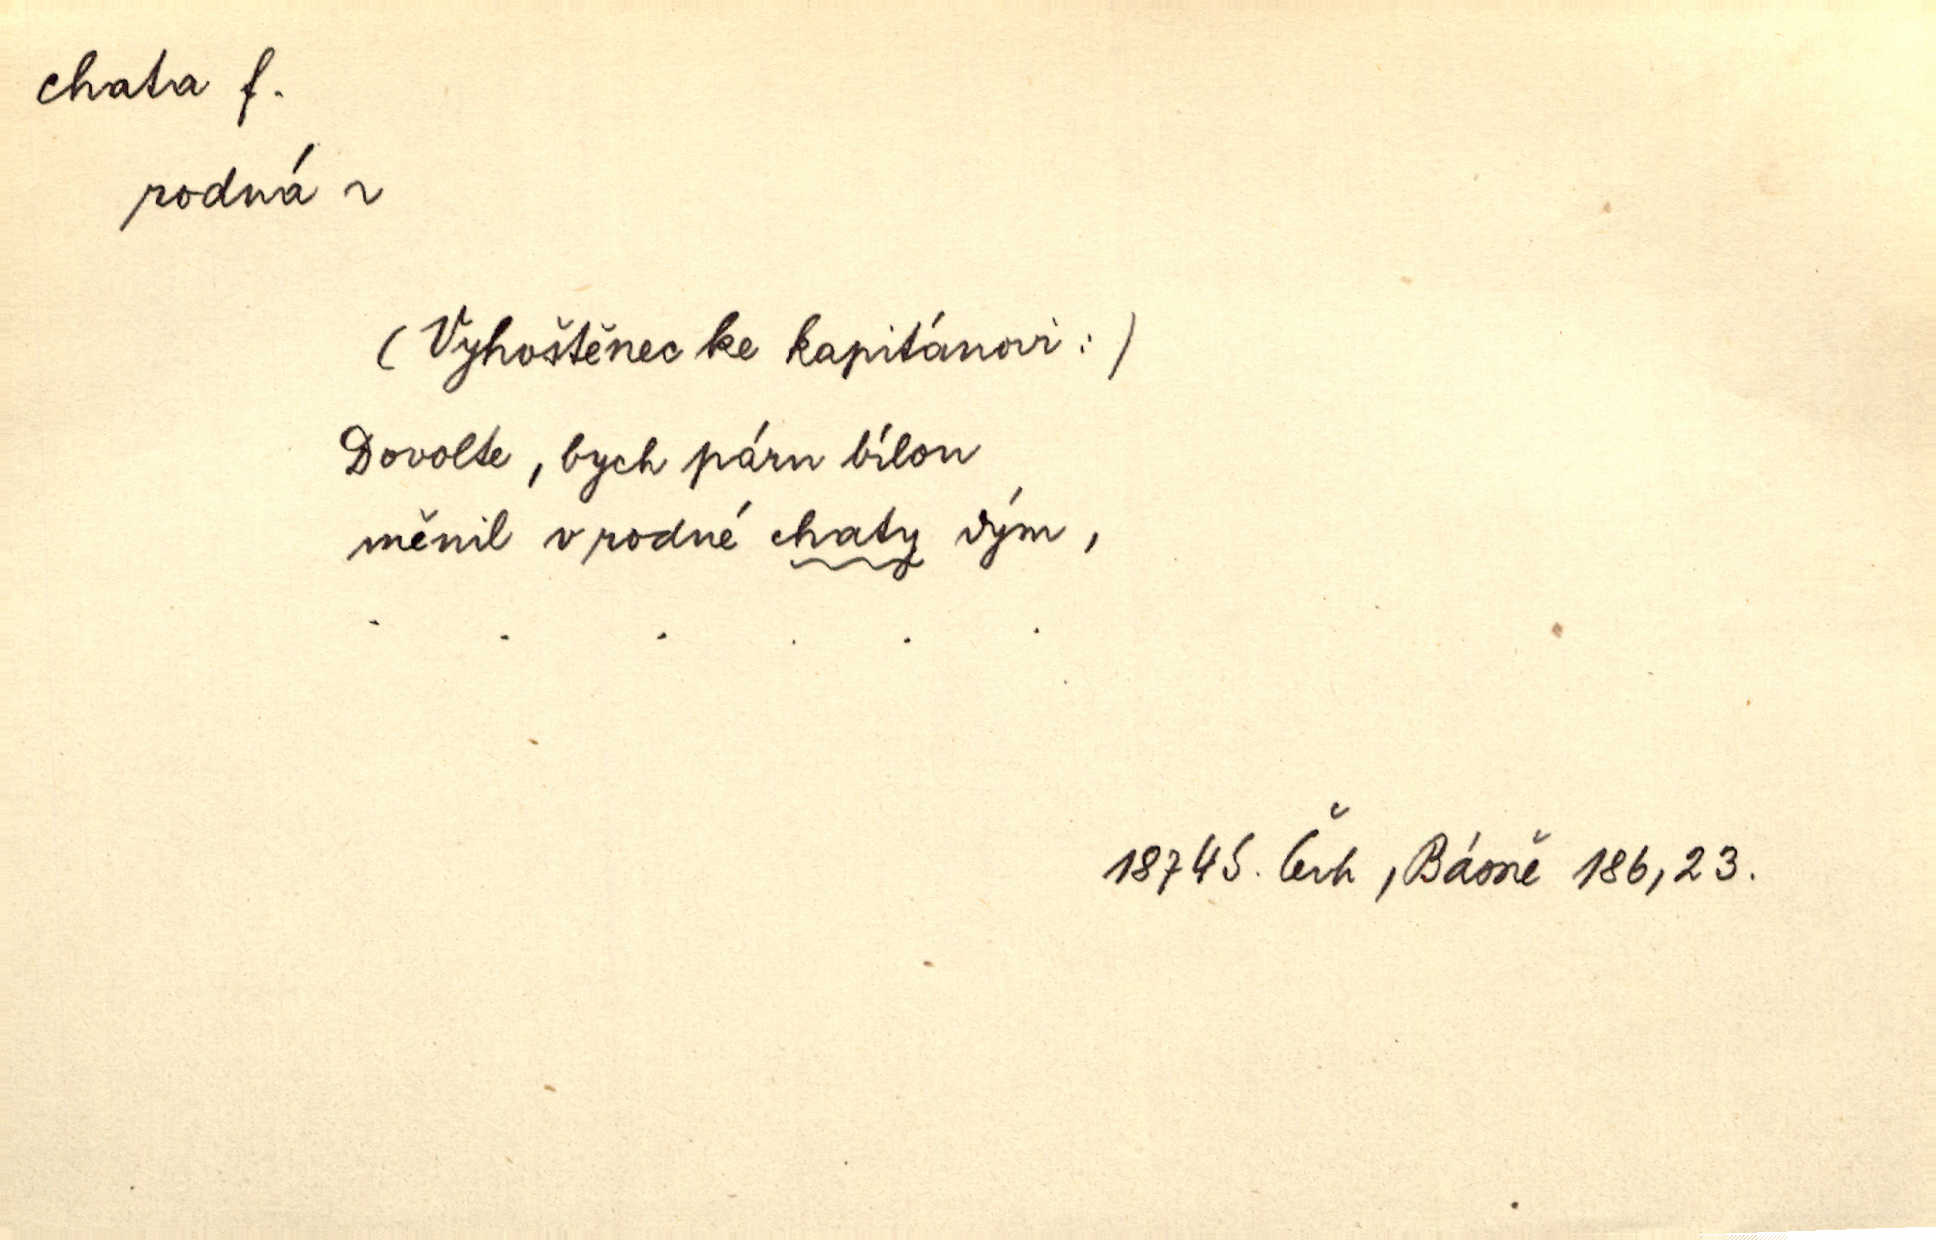 chata f.
rodná ~
(Vyhoštěnec ke kapitánovi:)
Dovolte, bych páru bílou
měnil v rodné chaty dým,
. . . . . .
1874 S. Čech, Básně 186,23.